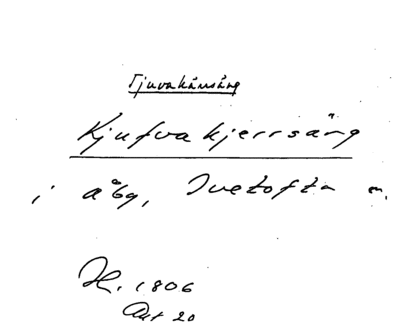 Tjuvakärrsäng
Kjufvakjerrsäng
i åbg, Ivetofta sn.
H. 1806
Akt 20